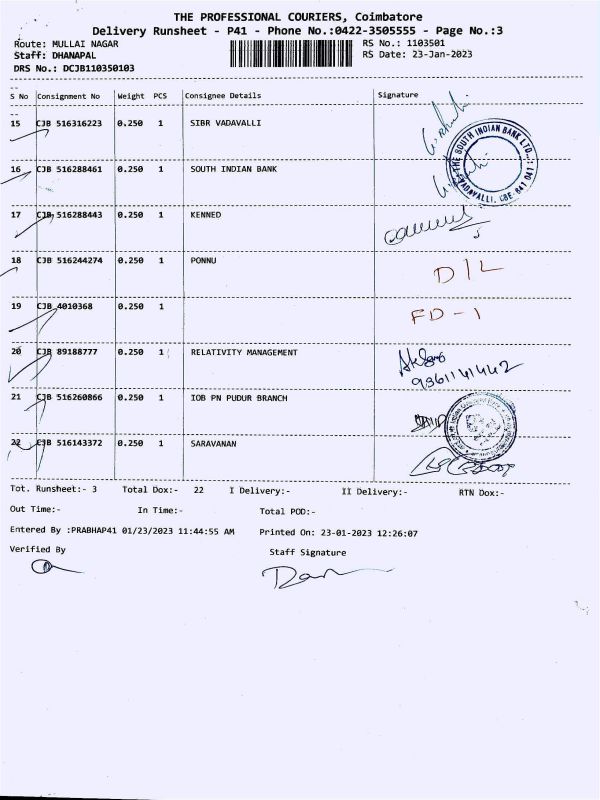 THE PROFESSIONAL COURIERS, Coimbatore
Delivery Runsheet - P41 - Phone No.:0422-3505555 - Page No.:3
Route: MULLAI NAGAR RS No.: 1103501
Staff: DHANAPAL RS Date: 23-Jan-2023
DRS No.: DCJB110350103
S No Consignment No Weight PCS Consignee Details Signature
15 CJB 516316223 0.250 1 SIBR VADAVALLI
THE SOUTH INDIAN BANK LTD.,
VADAVALLI, CBE-641 041
16 CJB 516288461 0.250 1 SOUTH INDIAN BANK
17 CJB 516288443 0.250 1 KENNED
18 CJB 516244274 0.250 1 PONNU D/L
19 CJB 4010368 0.250 1 FD-1
20 CJB 89188777 0.250 1 RELATIVITY MANAGEMENT 9361141442
21 CJB 516260866 0.250 1 IOB PN PUDUR BRANCH
22 CJB 516143372 0.250 1 SARAVANAN
Tot. Runsheet:- 3 Total Dox:- 22 I Delivery:- II Delivery:- RTN Dox:-
Out Time:- In Time:- Total POD:-
Entered By :PRABHAP41 01/23/2023 11:44:55 AM Printed On: 23-01-2023 12:26:07
Verified By Staff Signature